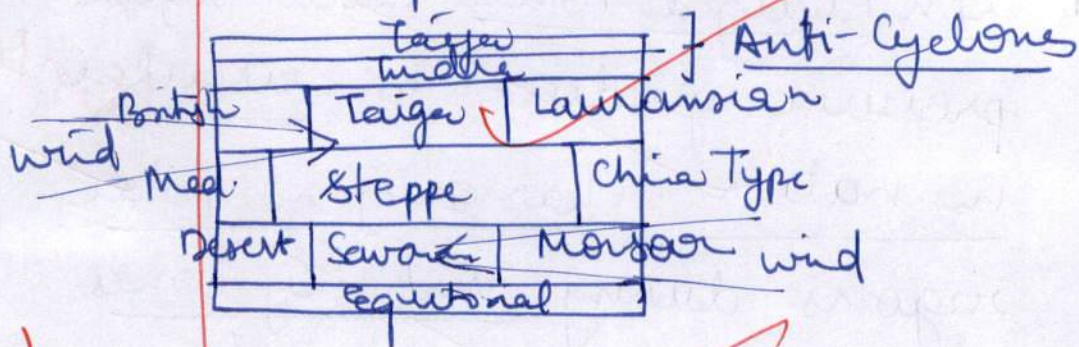 Taiga
Tundra
} Anti-Cyclones
British Taiga Lauransian
wind
Med. Steppe China Type
Desert Savana Monsoon wind
Equitorial